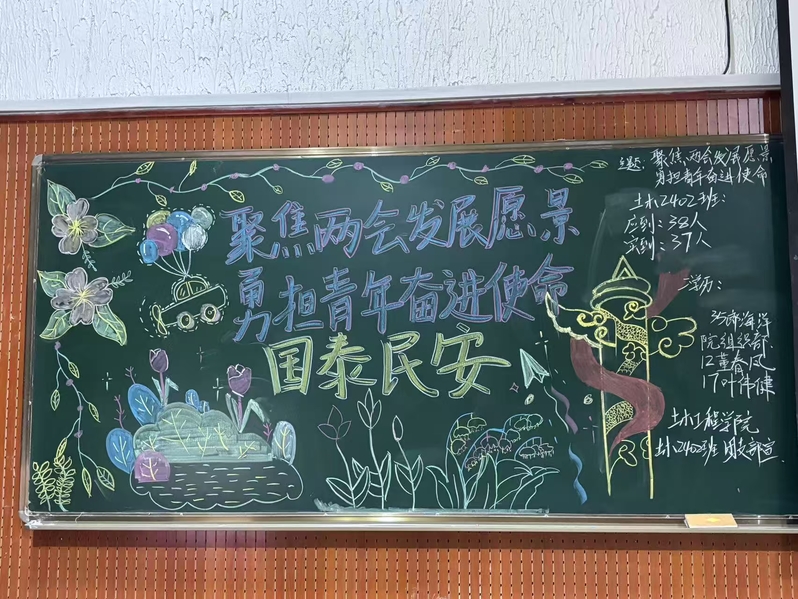 聚焦两会发展愿景
勇担青年奋进使命
国泰民安
主题：聚焦两会发展愿景
勇担青年奋进使命
土木2402班：
应到：38人
实到：37人
35帅海洋
院组织部
12董春风
17叶伟健
土木工程学院
土木2402班 团支部宣